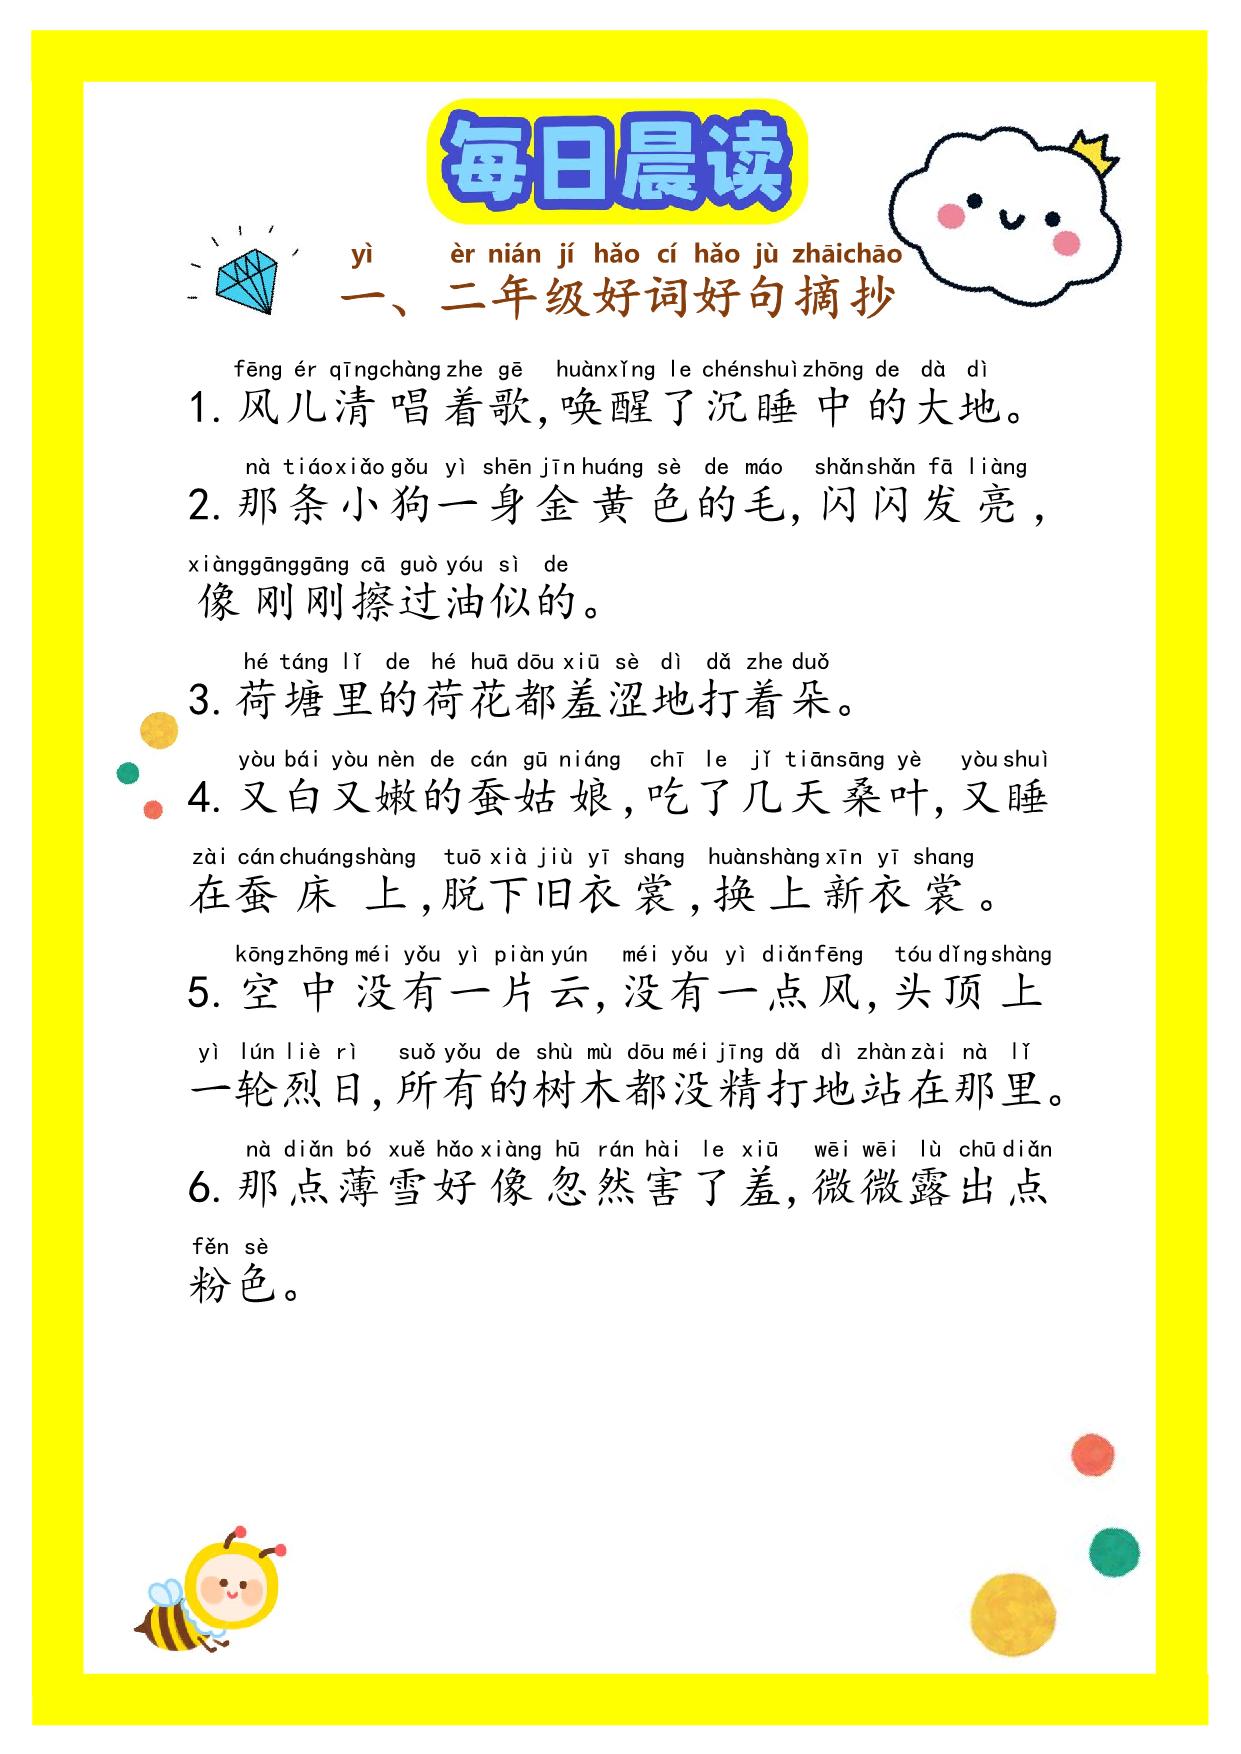 每日晨读
yì èr nián jí hǎo cí hǎo jù zhāichāo
一、二年级好词好句摘抄
fēng ér qīngchàng zhe gē huànxǐng le chénshuì zhōng de dà dì
1. 风儿清唱着歌,唤醒了沉睡中的大地。
nà tiáo xiǎo gǒu yì shēn jīn huáng sè de máo shǎnshǎn fā liàng
2. 那条小狗一身金黄色的毛,闪闪发亮,
xiànggānggāng cā guò yóu sì de
像刚刚擦过油似的。
hé táng lǐ de hé huā dōu xiū sè dì dǎ zhe duǒ
3. 荷塘里的荷花都羞涩地打着朵。
yòu bái yòu nèn de cán gū niáng chī le jǐ tiānsāng yè yòu shuì
4. 又白又嫩的蚕姑娘,吃了几天桑叶,又睡
zài cán chuángshàng tuō xià jiù yī shang huànshàng xīn yī shang
在蚕床上,脱下旧衣裳,换上新衣裳。
kōngzhōng méi yǒu yì piàn yún méi yǒu yì diǎnfēng tóu dǐngshàng
5. 空中没有一片云,没有一点风,头顶上
yì lún liè rì suǒ yǒu de shù mù dōu méi jīng dǎ dì zhàn zài nà lǐ
一轮烈日,所有的树木都没精打地站在那里。
nà diǎn bó xuě hǎo xiàng hū rán hài le xiū wēi wēi lù chū diǎn
6. 那点薄雪好像忽然害了羞,微微露出点
fěn sè
粉色。